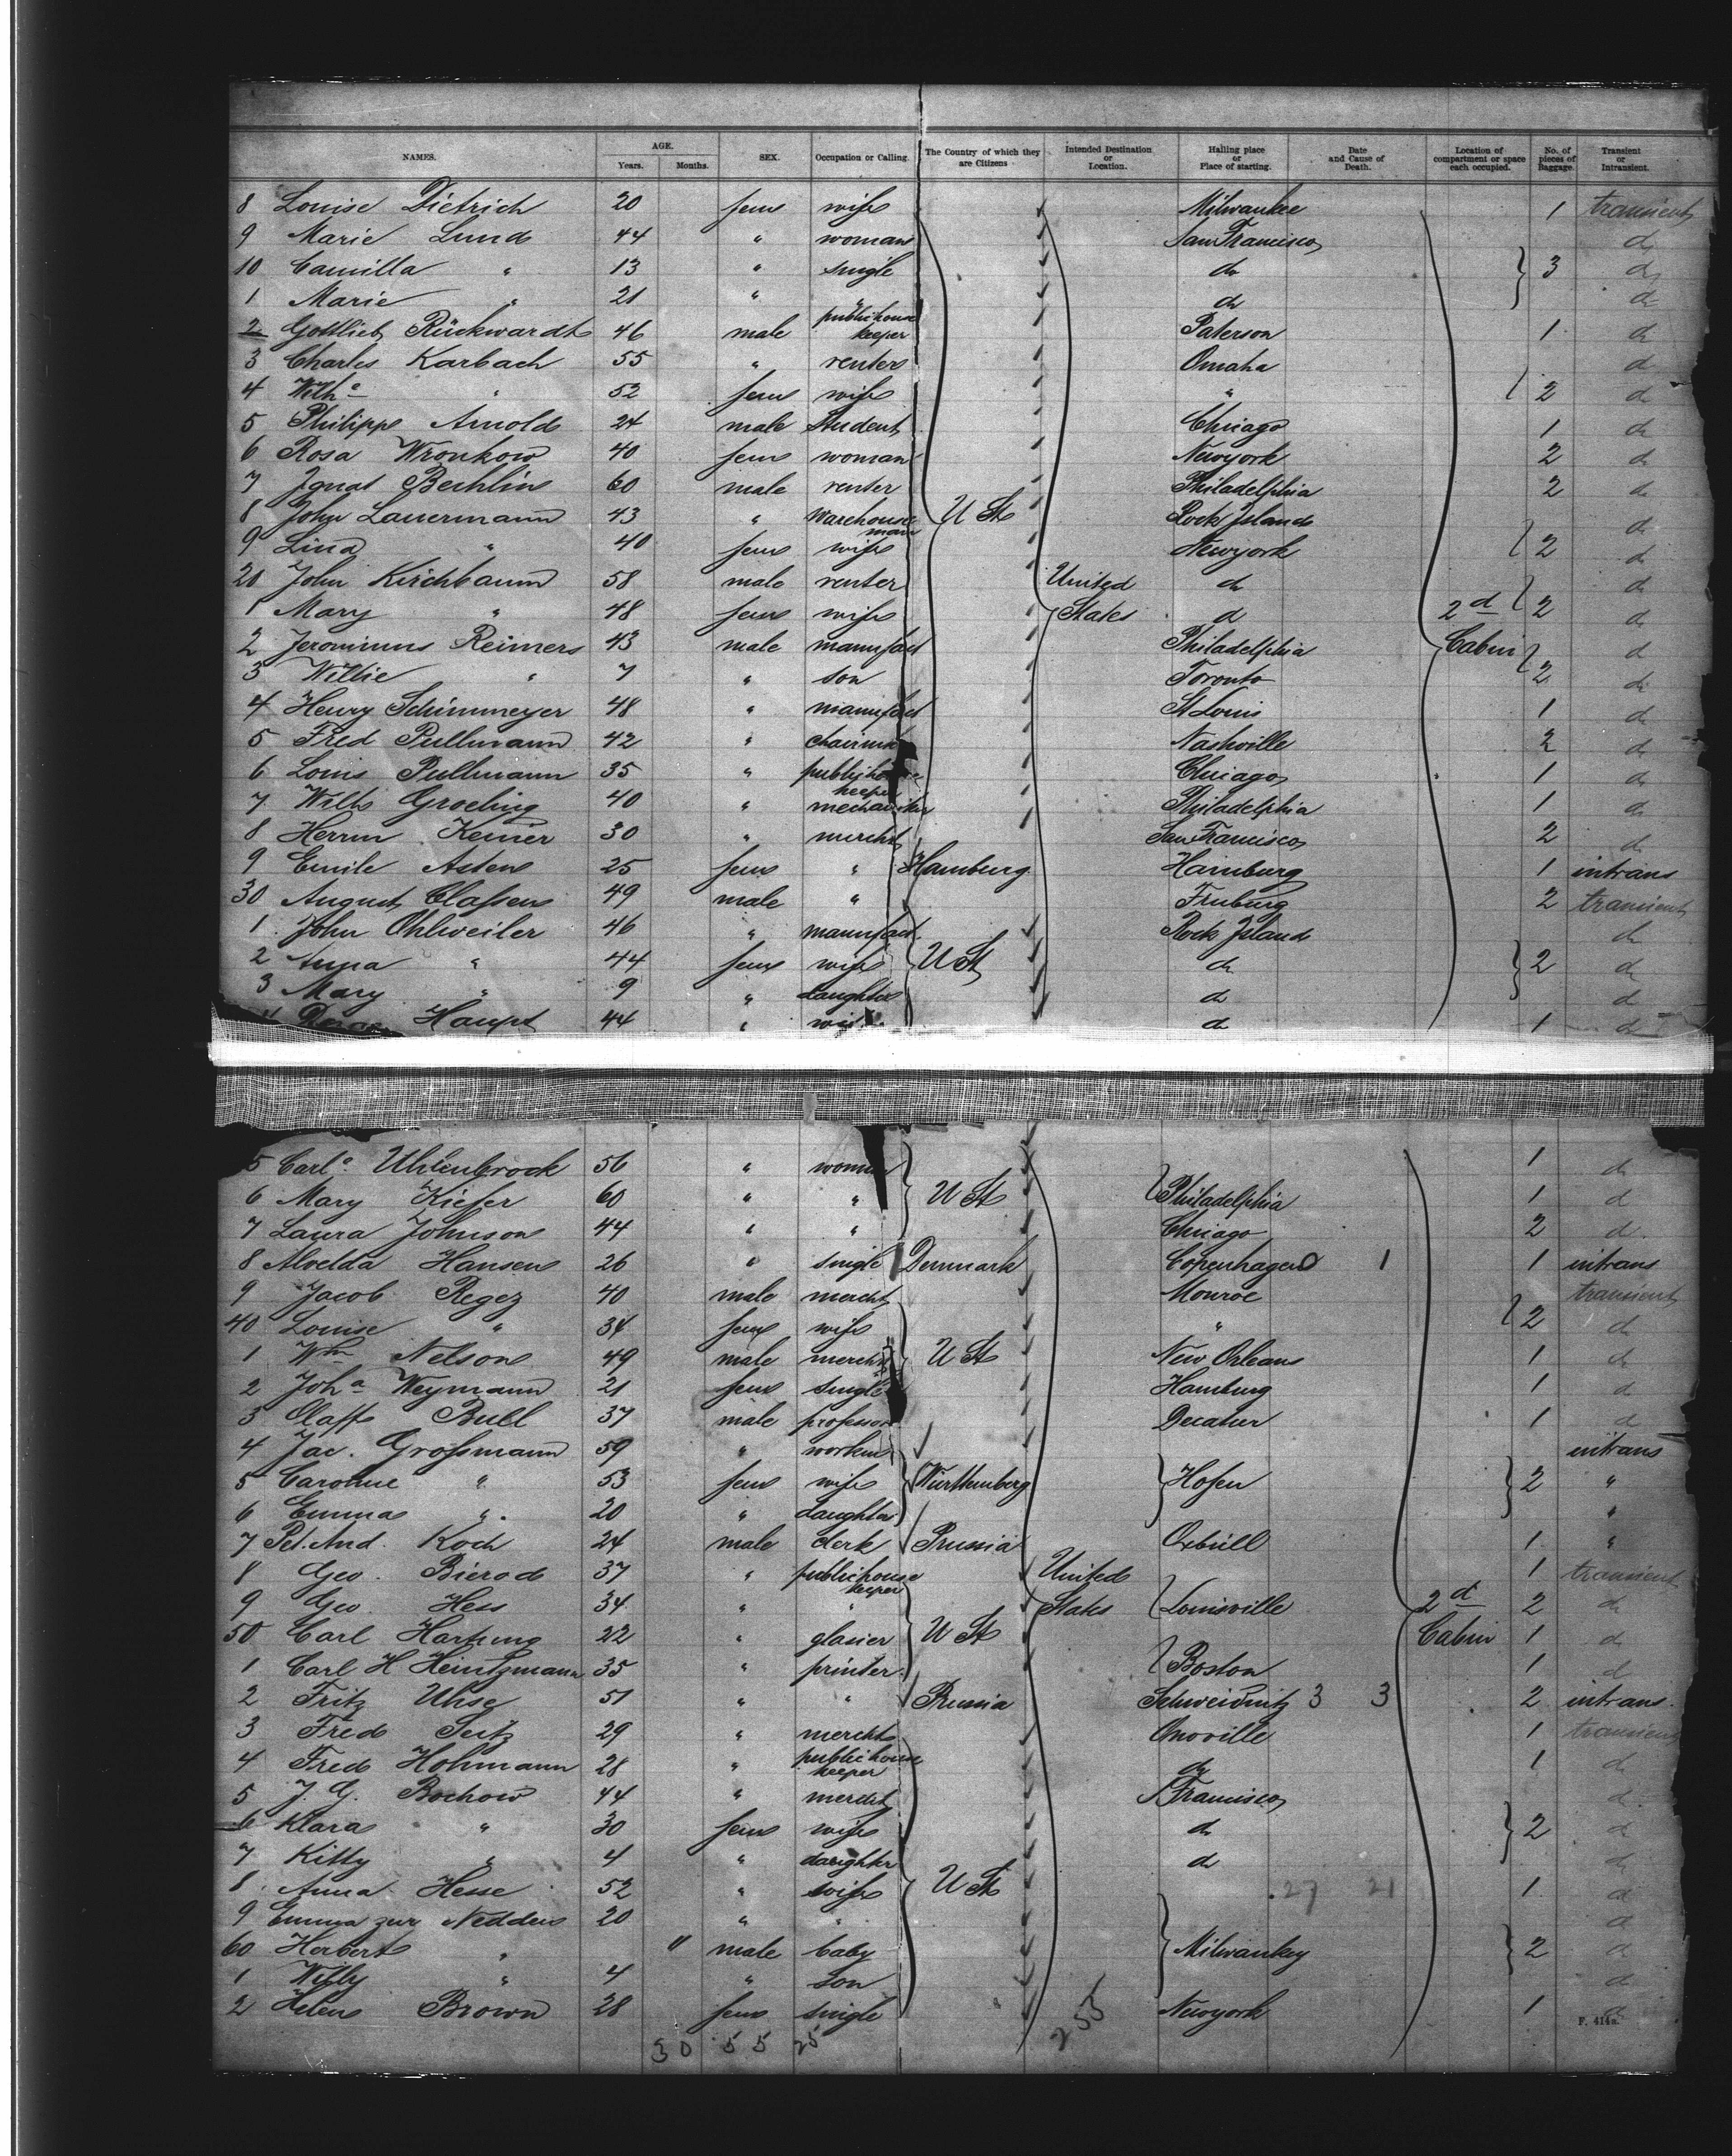 NAMES. AGE. SEX. Occupation or Calling. The Country of which they are Citizens Intended Destination or Location. Halling place or Place of starting. Date and Cause of Death. Location of compartment or space each occupied. No. of pieces of Baggage. Transient or Intransient.
Years. Months.
8 Louise Dietrich 20 fem wife Milwaukee 1 transient
9 Marie Lund 44 " woman San Francisco d
10 Camilla " 13 " single do 3 d
1 Marie " 21 " " do d
2 Gottlieb Rückwardt 46 male publichouse keeper Paterson 1 d
3 Charles Karbach 55 " renter Omaha d
4 Wilha " 52 fem wife " 2 d
5 Philipp Arnold 24 male Student Chicago 1 d
6 Rosa Wronkow 40 fem woman Newyork 2 d
7 Ignat Bechlin 60 male renter Philadelphia 2 d
8 John Lauermann 43 " Warehouse man U St Rock Island d
9 Lina " 40 fem wife Newyork 2 d
20 John Kirchbaum 58 male renter United do d
1 Mary " 48 fem wife States d 2d 2 d
2 Jeronimus Reimers 43 male manufact Philadelphia Cabin d
3 Willie " 7 " son Toronto 2 d
4 Henry Schimmeyer 48 " manufact St Louis 1 d
5 Fred Pullmann 42 " Nashville 2 d
6 Louis Pullmann 35 " publichouse keeper Chicago 1 d
7 Wilh Groeling 40 " mechaniker Philadelphia 1 d
8 Herrm Keiner 30 " mercht San Francisco 2 d
9 Emile Asten 25 fem " Hamburg Hamburg 1 intrans
30 August Classen 49 male " 2 transient
1 John Ohlweiler 46 " manufact. Rock Island d
2 Anna " 44 fem wife U St do 2 d
3 Mary " 9 " daughter d d
Haupt 44 " d 1 d
5 Carla Uhlenbrock 56 " woman 1 d
6 Mary Kiefer 60 " " U St Philadelphia 1 d
7 Laura Johnson 44 " " Chicago 2 d
8 Alvelda Hansen 26 " single Denmark Copenhagen 0 1 1 intrans
9 Jacob Regez 40 male mercht Monroe transient
40 Louise " 34 fem wife " 2 d
1 Wm Nelson 49 male mercht U St New Orleans 1 d
2 Joha Weymann 21 fem single Hamburg 1 d
3 Olaff Bull 37 male professor Decatur 1 d
4 Jac. Großmann 59 " workm intrans
5 Caroline " 53 fem wife Württemberg Hofen 2 "
6 Emma " 20 " daughter "
7 Pet. And. Koch 24 male clerk Prussia Oxbüll 1 "
8 Geo. Bierod 37 " publichouse keeper United 1 transient
9 Geo. Hess 34 " " States Louisville 2d 2 d
50 Carl Hartung 22 " glasier U St Cabin 1 d
1 Carl H Heintzmann 35 " printer Boston 1 d
2 Fritz Uhse 51 " " Prussia Schweidnitz 3 3 2 intrans.
3 Fred Seitz 29 " mercht Onoville 1 transient
4 Fred Hohmann 28 " publichouse keeper do 1 d
5 J. G. Bochow 44 " mercht S Francisco d
6 Klara " 30 fem wife d 2 d
7 Kitty " 4 " daughter d d
8 Anna Hesse 52 " wife U St 27 21 1 d
9 Emma zur Nedden 20 " " d
60 Herbert " 11 male baby Milwaukey 2 d
1 Willy " 4 " Son d
2 Helene Brown 28 fem single Newyork 1 d
F. 414a.
30 55 25 255